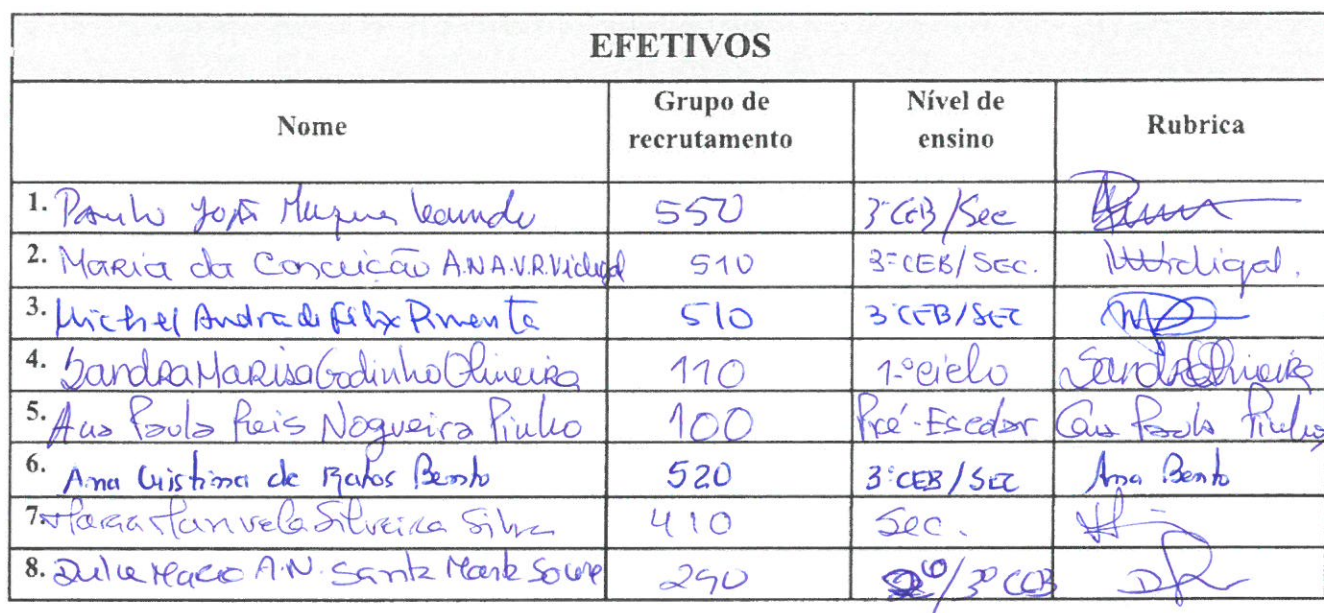 EFETIVOS
Nome Grupo de recrutamento Nível de ensino Rubrica
1. Paulo João 550 3ºCEB/Sec
2. Maria da Conceição A.N.A.V.R.Vidigal 510 3ºCEB/SEC. Vidigal.
3. Michel Andrade Félix Pimenta 510 3ºCEB/SEC
4. Sandra Marisa Godinho Oliveira 110 1.ºciclo Sandra Oliveira
5. Ana Paula Reis Nogueira Pinho 100 Pré-Escolar Ana Paula Pinho
6. Ana Cristina de Bento 520 3ºCEB/SEC Ana Bento
7. Maria Manuela Silveira Silva 410 Sec.
8. Dulce A.N. 290 2º/3º CEB